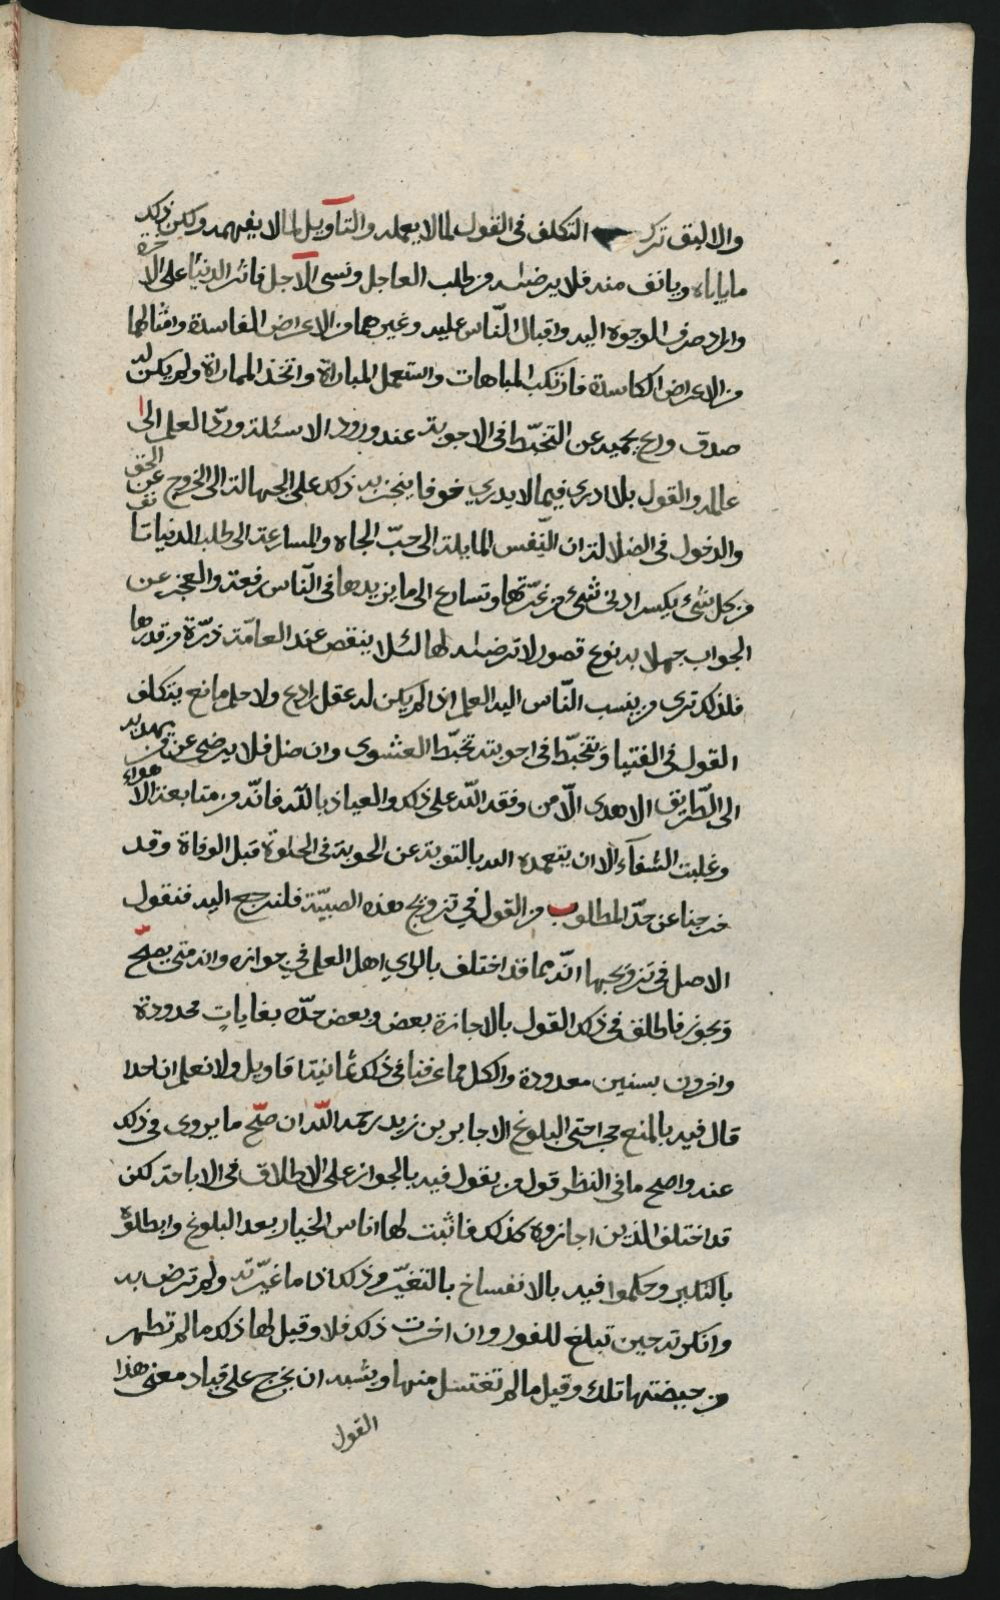 والاليق ترك التكلف في القول لما لا يعلمه والتأويل لما لا يفهمه ولكن ذلك
ما ياباه ويانف منه فلا يرضاه من طلب العاجل ونسى الآجل فاثر الدنيا على الاخرة
واراد صرف الوجوه اليه واقبال النّاس عليه وغيرهما من الاعراض الفاسدة وامثالها
من الاعراض الكاسدة فارتكب المباهات واستعمل المباراة واتخذ المماراة ولم يكن له
صدق ورع يحميه عن التخبّط في الاجوبة عند ورود الاسئلة وردّ العلم الى
عالمه والقول بلا ادري فيما لا يدري خوفا ينجر به ذلك على الجهالة الى الخروج عن الحق
والدخول في الضلالة لان النّفس المايلة الى حبّ الجاه والمسارعة الى طلب الدنيا تانف
من كل شيء يكسر ادنى شيء من عزّتها وتسارع الى ما يزيدها في النّاس رفعة والعجز عن
الجواب جهلا به نوع قصور لا ترضاه لها لئلا ينقص عند العامّة ذرّة من قدرها
فلذلك ترى من ينسب النّاس اليه العلم اذا لم يكن له عقل رادع ولا حلم مانع يتكلف
القول في الفتيا ويتخبّط في اجوبته تخبّط العشوى وان ضل فلا يرضى عن من يهديه
الى الطّريق الاهدى الّا من وفقه اللّه على ذلك والعياذ باللّه فانّه من متابعة الاهواء
وغلبت الشقآء الا ان يتغمده الله بالتوبة عن الحوبة في الحلوة قبل الوفاة وقد
خرجنا عن حدّ المطلوب من القول في تزويج هذه الصبيّة فلنرجع اليه فنقول
الاصل في تزويجها انّه مما قد اختلف بالراي اهل العلم في جوازه وانه متى يصحّ
ويجوز فاطلق في ذلك القول بالاجازة بعض وبعض حدّه بغاياتٍ محدودة
واخرون بسنين معدودة والكل مما عرفنا في ذلك ثمانية اقاويل ولا نعلم ان احدا
قال فيه بالمنع حتى البلوغ الا جابر بن زيد رحمه اللّه ان صحّ ما يروى في ذلك
عنه واصح ما في النظر قول من يقول فيه بالجواز على الاطلاق في الاباحة لكن
قد اختلف الذين اجازوه كذلك فاثبت لها اناس الخيار بعد البلوغ وابطلوه
بالنكير وحكموا فيه بالانفساخ بالتغيّر وذلك اذا ما غيّرته ولم ترض به
وانكرته حين تبلغ للفور وان اخرت ذلك فلا وقيل لها ذلك ما لم تطهر
من حيضتها تلك وقيل ما لم تغتسل منها ويشبه ان يخرج على قياد معنى هذا
القول